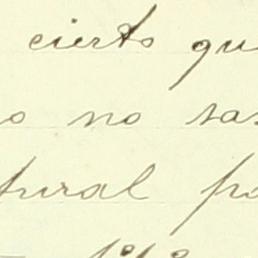 cierto qu
o no sas
tural po